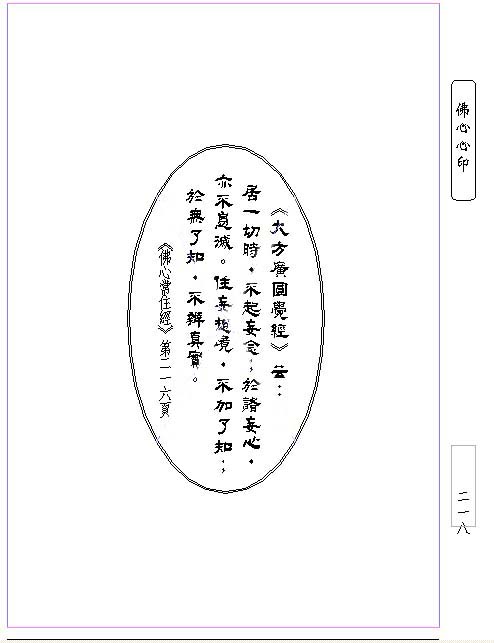 佛心心印
《大方廣圓覺經》云：
居一切時，不起妄念；於諸妄心，
亦不息滅。住妄想境，不加了知；
於無了知，不辨真實。
《佛心常住經》第二一六頁
二一八